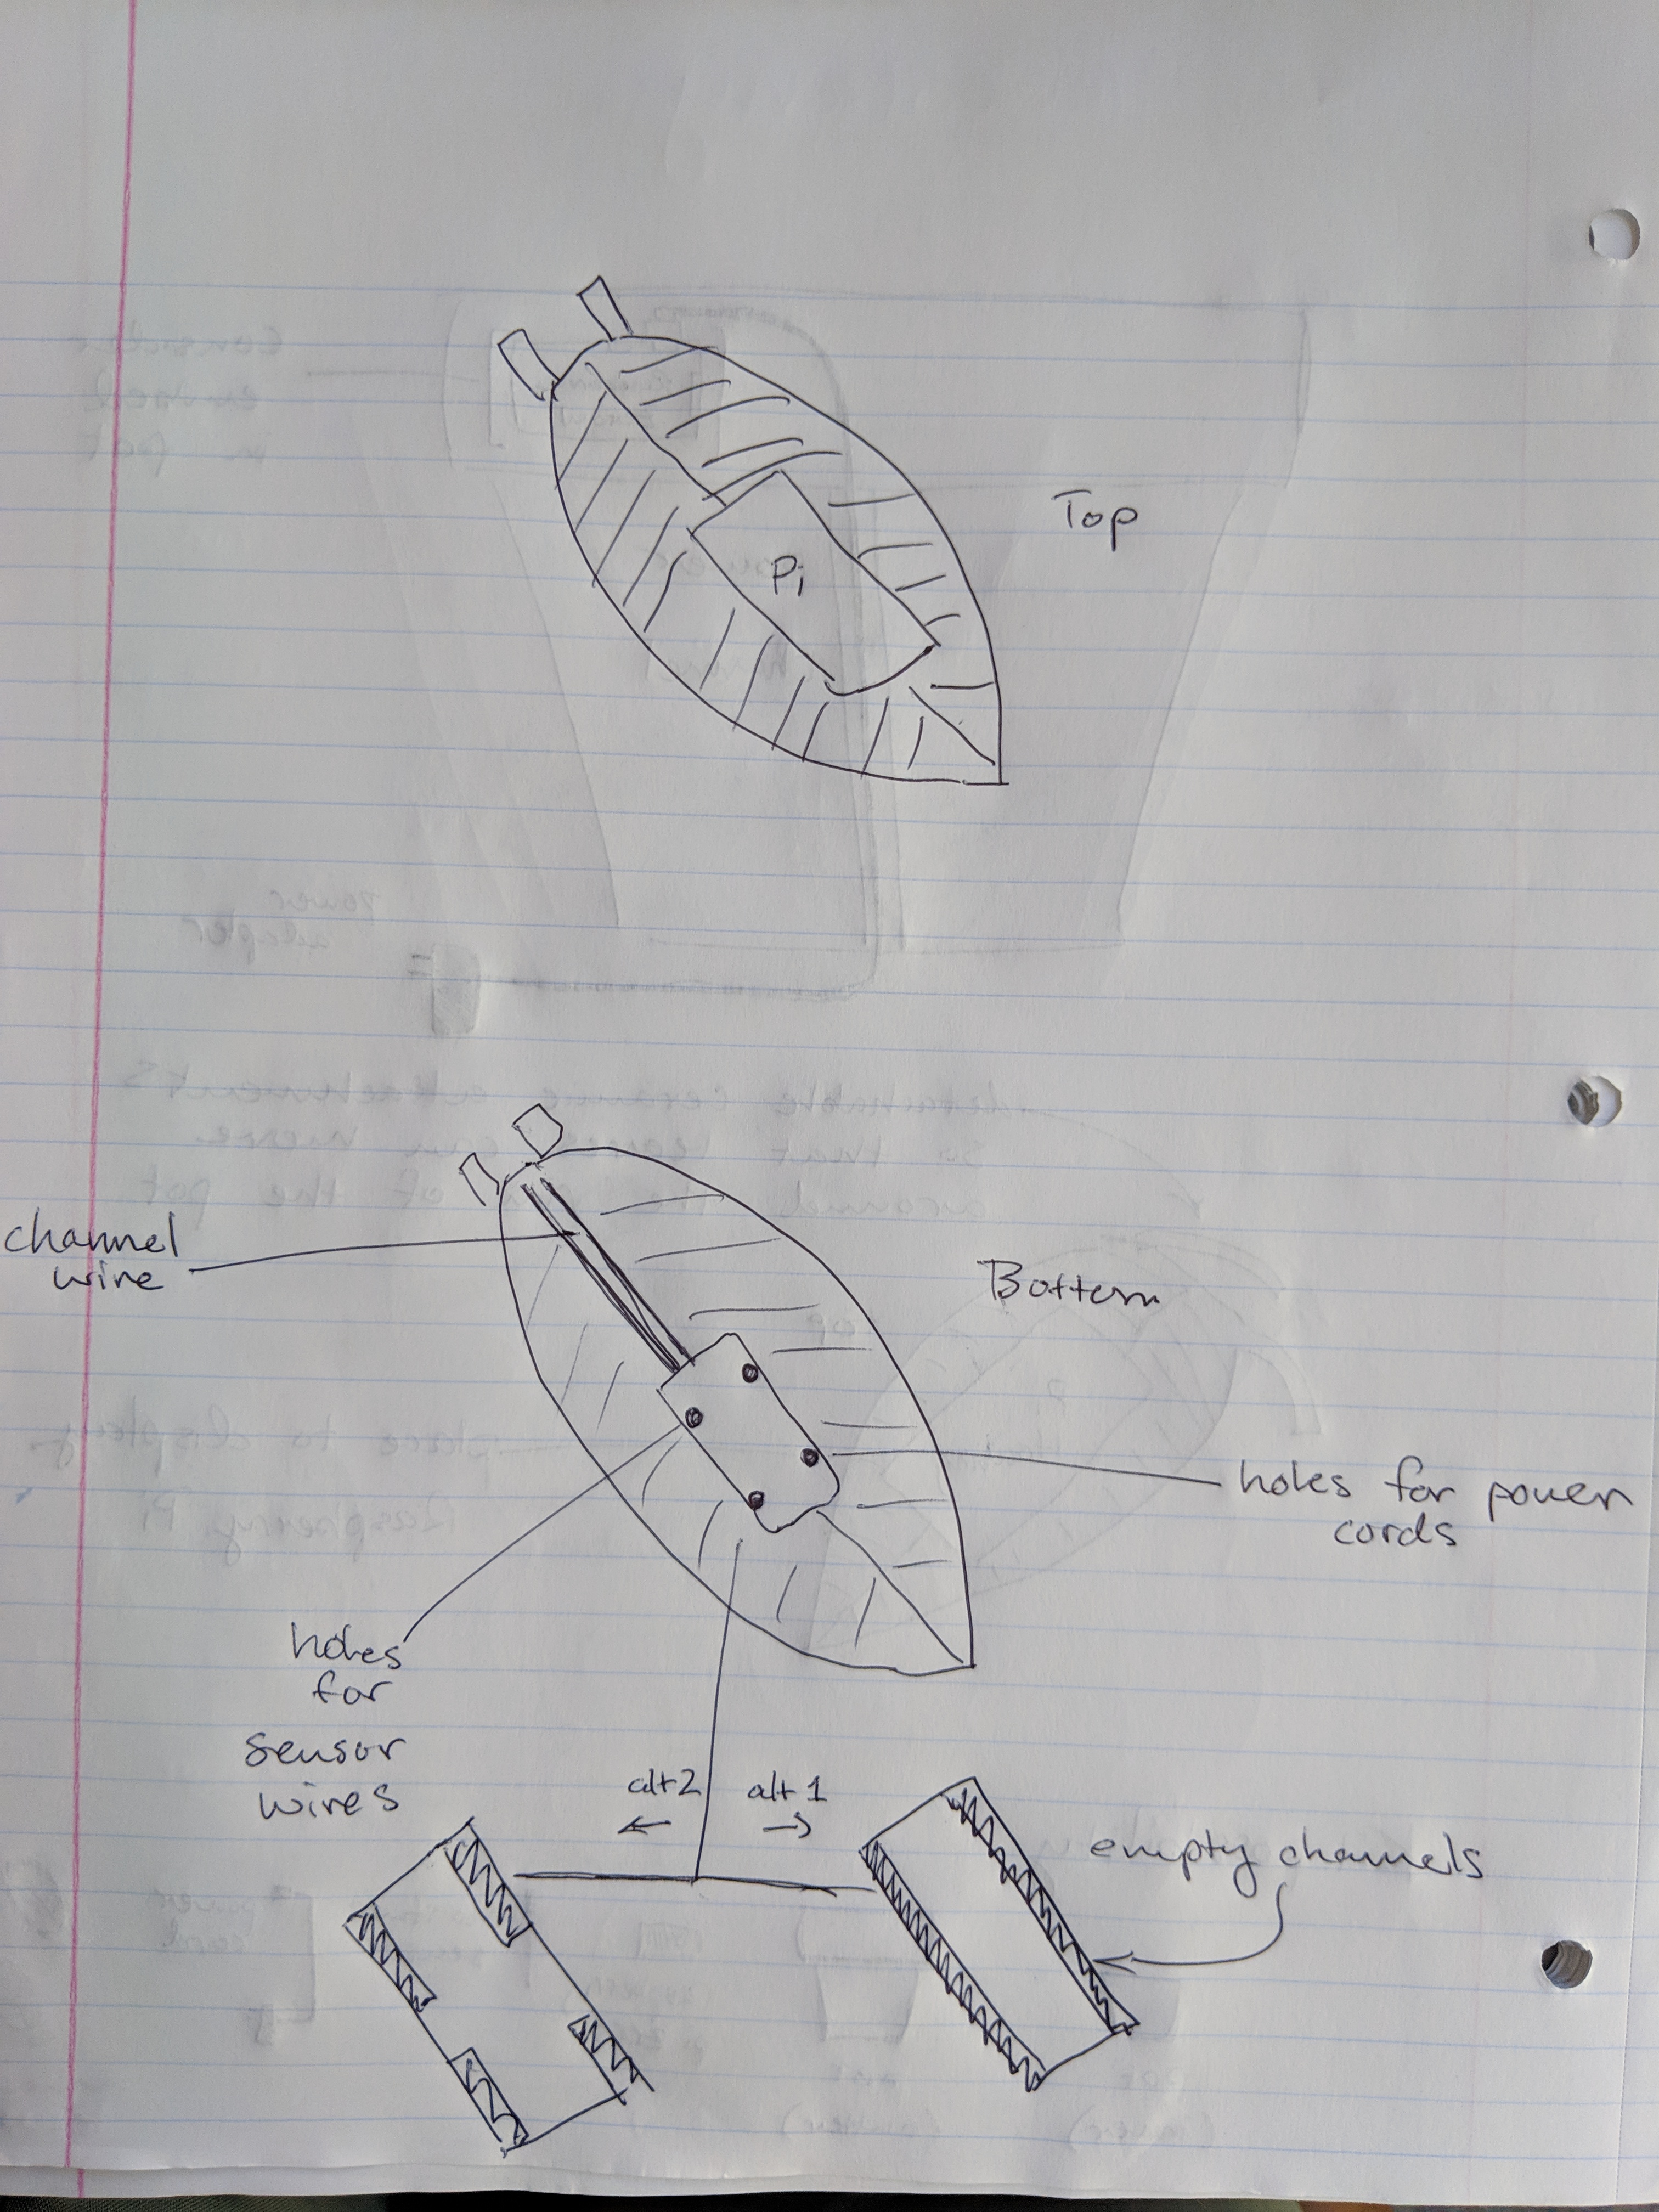 Pi
Top
channel
wire
Bottom
holes for power
cords
holes
for
sensor
wires
alt 2
alt 1
empty channels